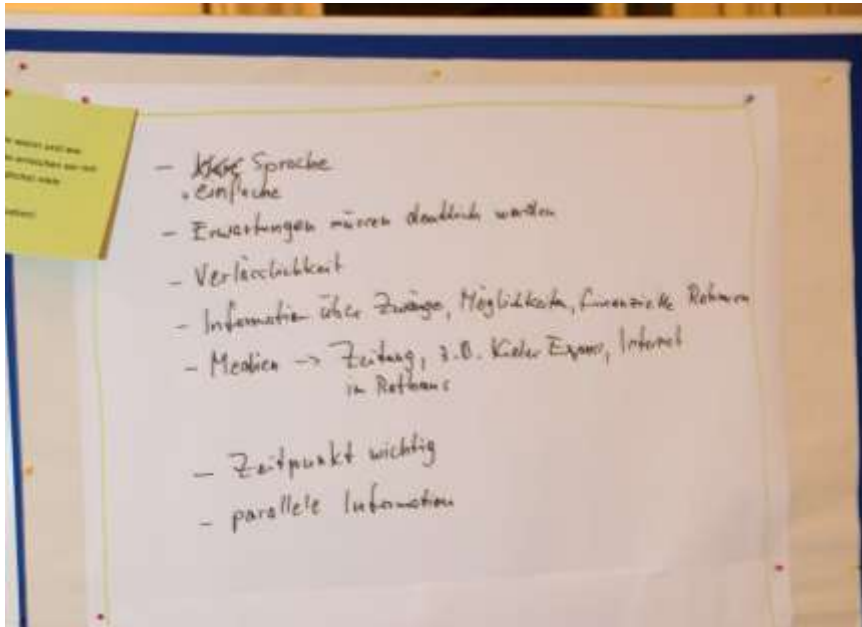 - klare Sprache
• einfache
- Erwartungen müssen deutlich werden
- Verlässlichkeit
- Information über Zwänge, Möglichkeiten, finanzielle Rahmen
- Medien -> Zeitung, z.B. Kieler Express, Internet
im Rathaus
- Zeitpunkt wichtig
- parallele Information